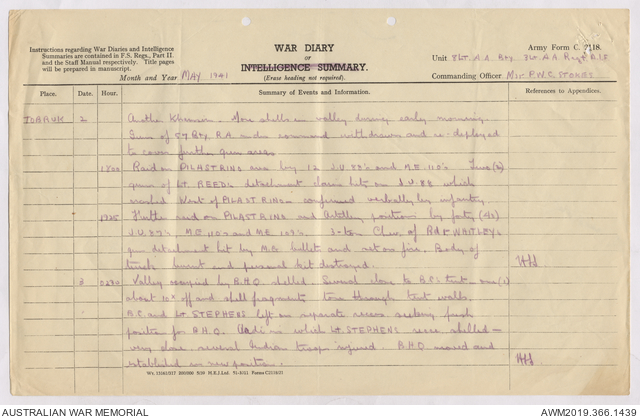 Instructions regarding War Diaries and Intelligence
Summaries are contained in F.S. Regs., Part II.
and the Staff Manual respectively. Title pages
will be prepared in manuscript.
WAR DIARY
OR
INTELLIGENCE SUMMARY.
(Erase heading not required).
Month and Year MAY 1941
Army Form C. 2118.
Unit 8 Lt. A.A. Bty. 3 Lt. A.A. Regt A.I.F
Commanding Officer Maj. P.W.C. STOKES
Place. Date. Hour. Summary of Events and Information. References to Appendices.
TOBRUK 2 Khamsin. More shells in valley during early morning.
Guns of 57 Bty R.A. under command withdrawn and re-deployed
to cover further gun areas.
1800 Raid on PILASTRINO area by 12 J.U. 88's and M.E. 110's. Two (2)
guns of Lt. REED's detachment claim hits on J.U. 88 which
crashed West of PILASTRINO - confirmed verbally by infantry.
1925 Further raid on PILASTRINO and Artillery positions by forty (40)
J.U. 87's, M.E. 110's and M.E. 109's. 3-ton Chev. of Bdr WHITLEY's
gun detachment hit by M.G. bullets and set on fire. Body of
truck burnt and personal kit destroyed.
3 0230 Valley occupied by B.H.Q. shelled. Several close to B.C's tent - one (1)
about 10x off and shell fragments tore through tent walls.
B.C. and Lt. STEPHENS left on separate recces seeking fresh
position for B.H.Q. Wadi in which Lt. STEPHENS recce shelled -
very close, several Indian troops injured. B.H.Q. moved and
established in new position.
AUSTRALIAN WAR MEMORIAL
AWM2019.366.1439